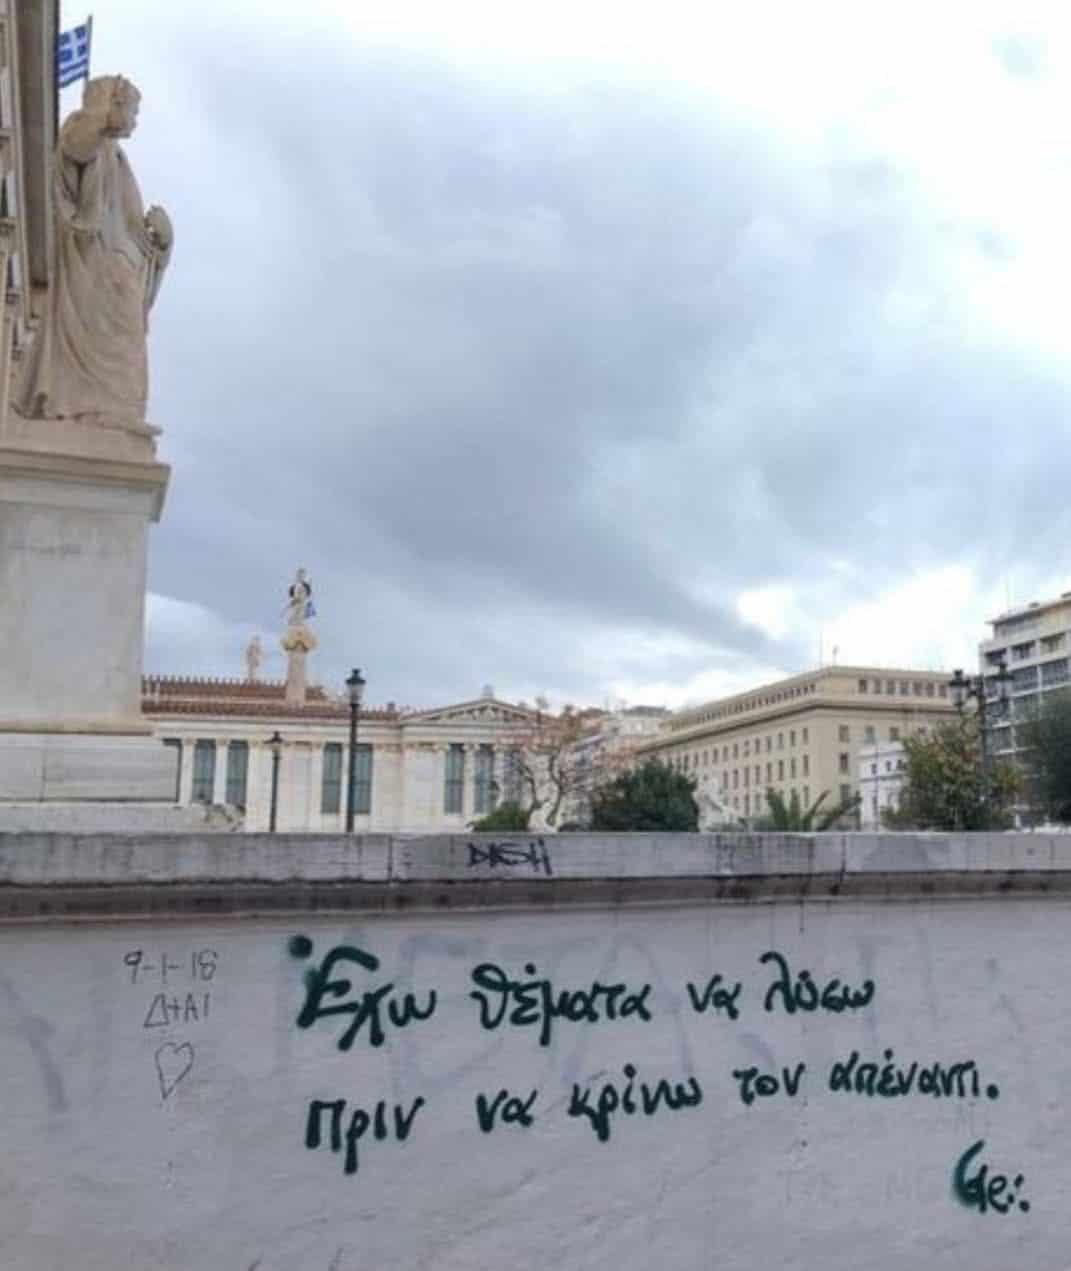 DASH
9-1-18
Δ+ΑΙ
Έχω θέματα να λύσω
πριν να κρίνω τον απέναντι.